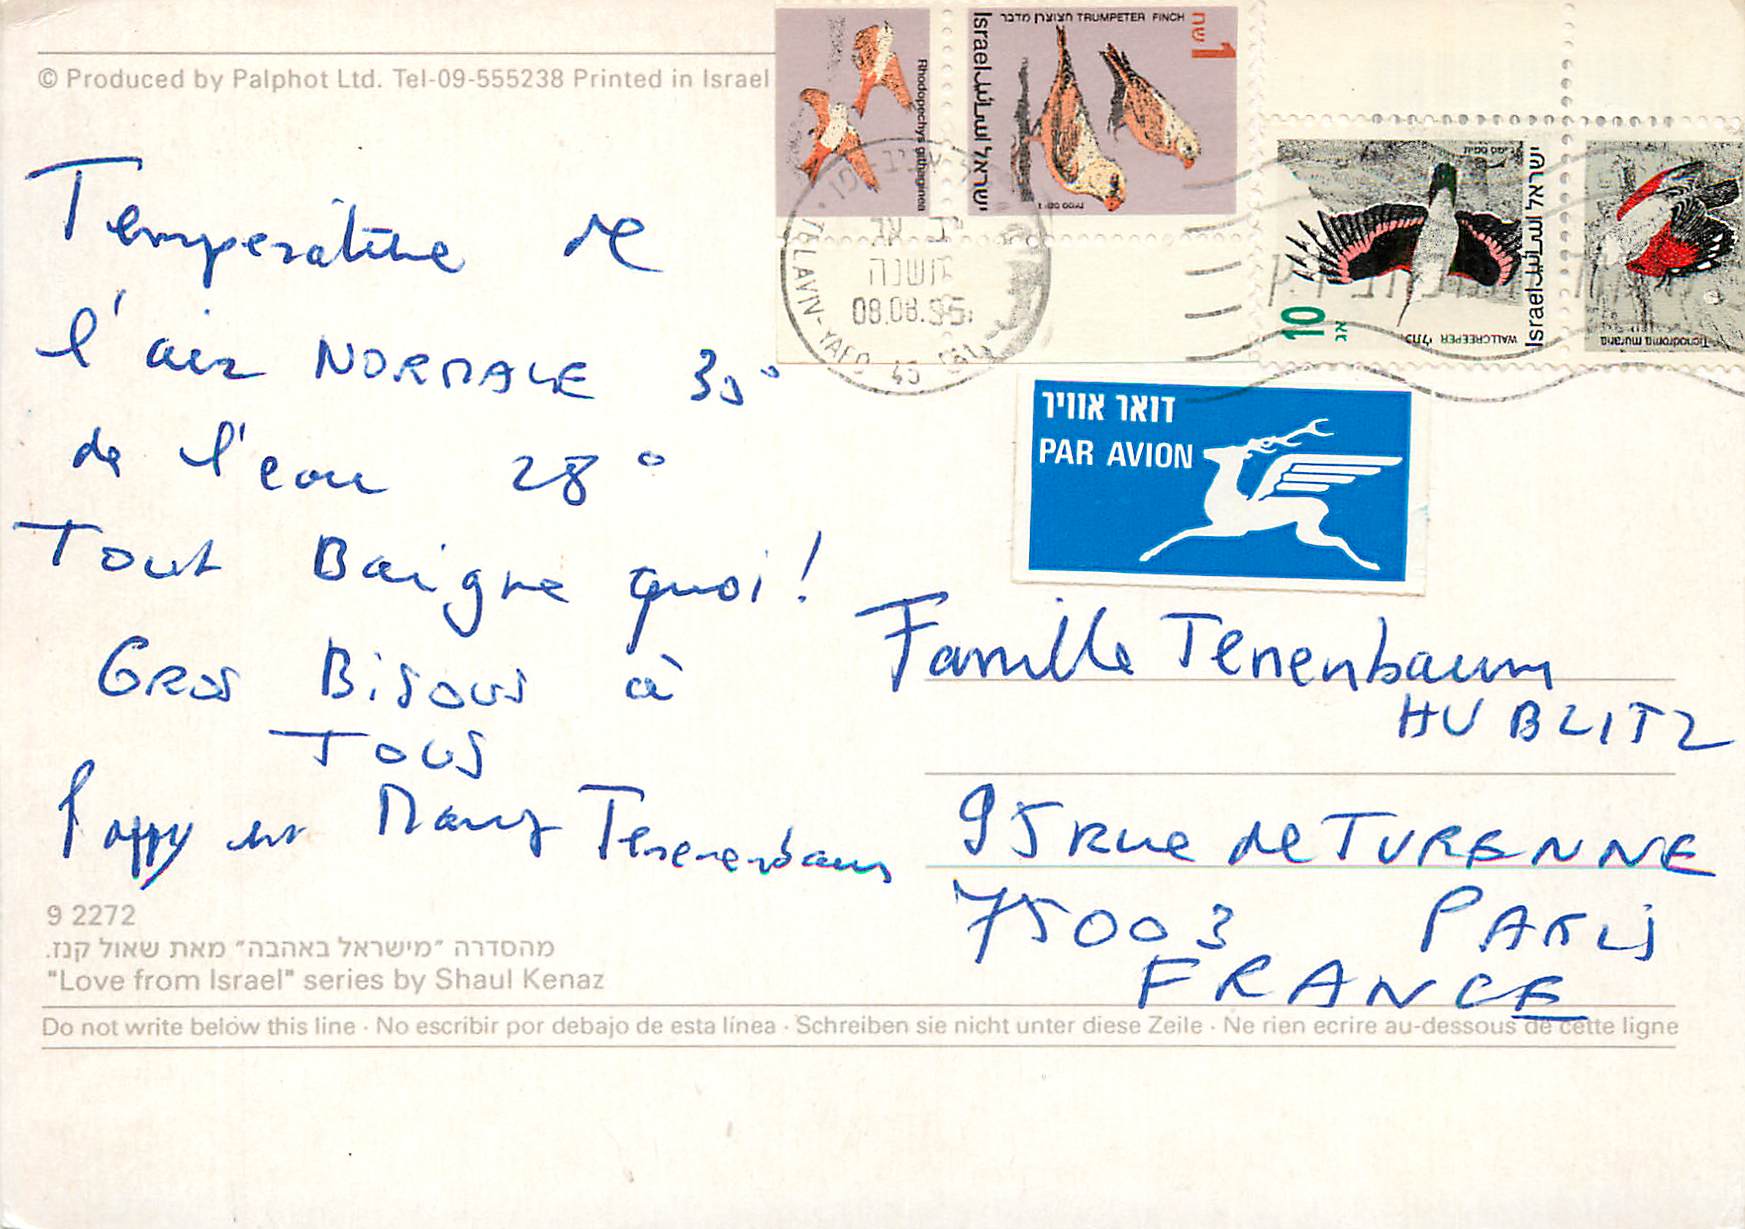 © Produced by Palphot Ltd. Tel-09-555238 Printed in Israel
Rhodopechys githaginea
Israel اسرائيل ישראל
חצוצרן מדבר TRUMPETER FINCH
1 שח
ישראל اسرائيل Israel
WALLCREEPER כותלי
10 אג
Tichodroma muraria
TEL AVIV-YAFO
תשנה
08.08.95
דואר אוויר
PAR AVION
Température de
l'air NORMALE 35°
de l'eau 28°
Tout Baigne quoi!
GROS BISOUS à
TOUS
Pappy et Mamy Tenenbaum
Famille Tenenbaum
HUBLITZ
95 Rue de TURENNE
75003 PARIS
FRANCE
9 2272
מהסדרה "מישראל באהבה" מאת שאול קנז.
"Love from Israel" series by Shaul Kenaz
Do not write below this line · No escribir por debajo de esta línea · Schreiben sie nicht unter diese Zeile · Ne rien ecrire au-dessous de cette ligne